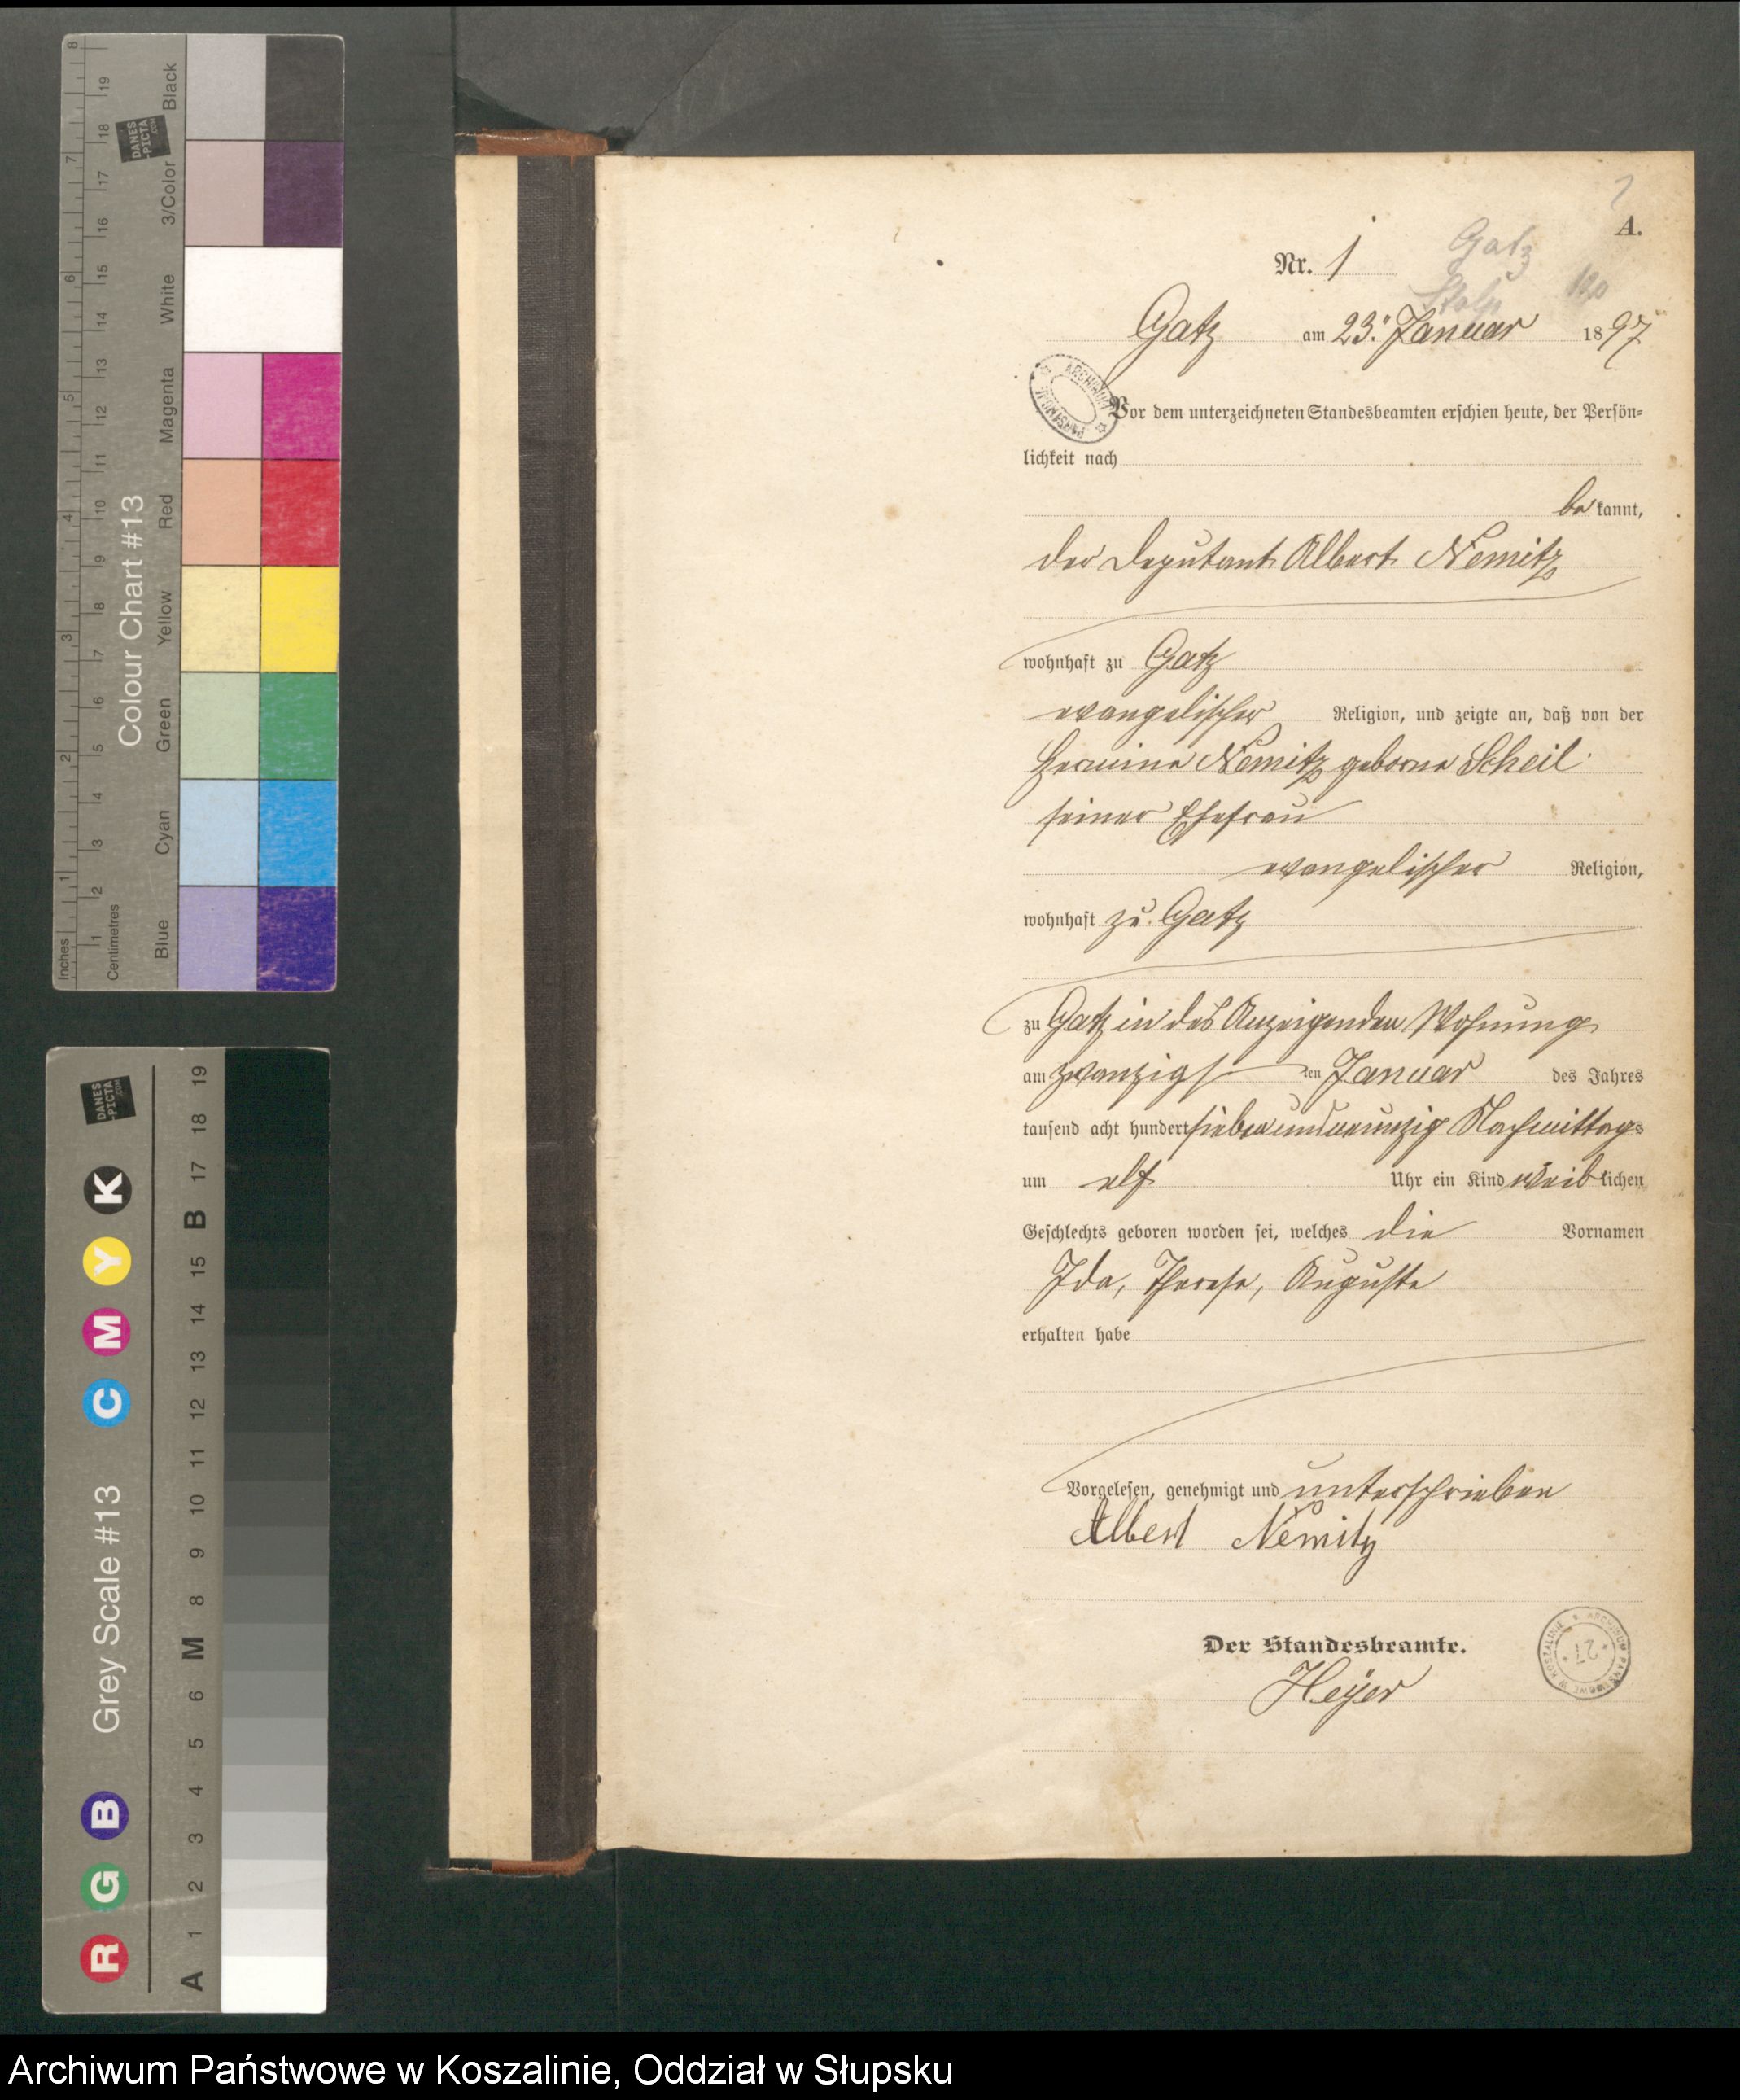 A.
Nr. 1
Gatz
Gatz am 23. Januar 1897
Vor dem unterzeichneten Standesbeamten erschien heute, der Persön=
lichkeit nach
be kannt,
der Deputant Albert Nemitz
wohnhaft zu Gatz
evangelischer Religion, und zeigte an, daß von der
Hermine Nemitz geborne Scheil
seiner Ehefrau
evangelischer Religion,
wohnhaft zu Gatz
zu Gatz in des Anzeigenden Wohnung
am zwanzigsten Januar des Jahres
tausend acht hundert siebenundneunzig Nachmittags
um elf Uhr ein Kind weiblichen
Geschlechts geboren worden sei, welches die Vornamen
Ida, Therese, Auguste
erhalten habe
Vorgelesen, genehmigt und unterschrieben
Albert Nemitz
Der Standesbeamte.
Heyer
ARCHIWUM PAŃSTWOWE W KOSZALINIE
27
Colour Chart #13
Inches
1 2 3 4 5 6 7 8
Centimetres
1 2 3 4 5 6 7 8 9 10 11 12 13 14 15 16 17 18 19
Blue Cyan Green Yellow Red Magenta White 3/Color Black
DANES
-PICTA
.COM
Grey Scale #13
R G B C M Y K
A 1 2 3 4 5 6 M 8 9 10 11 12 13 14 15 B 17 18 19
DANES
-PICTA
.COM
Archiwum Państwowe w Koszalinie, Oddział w Słupsku